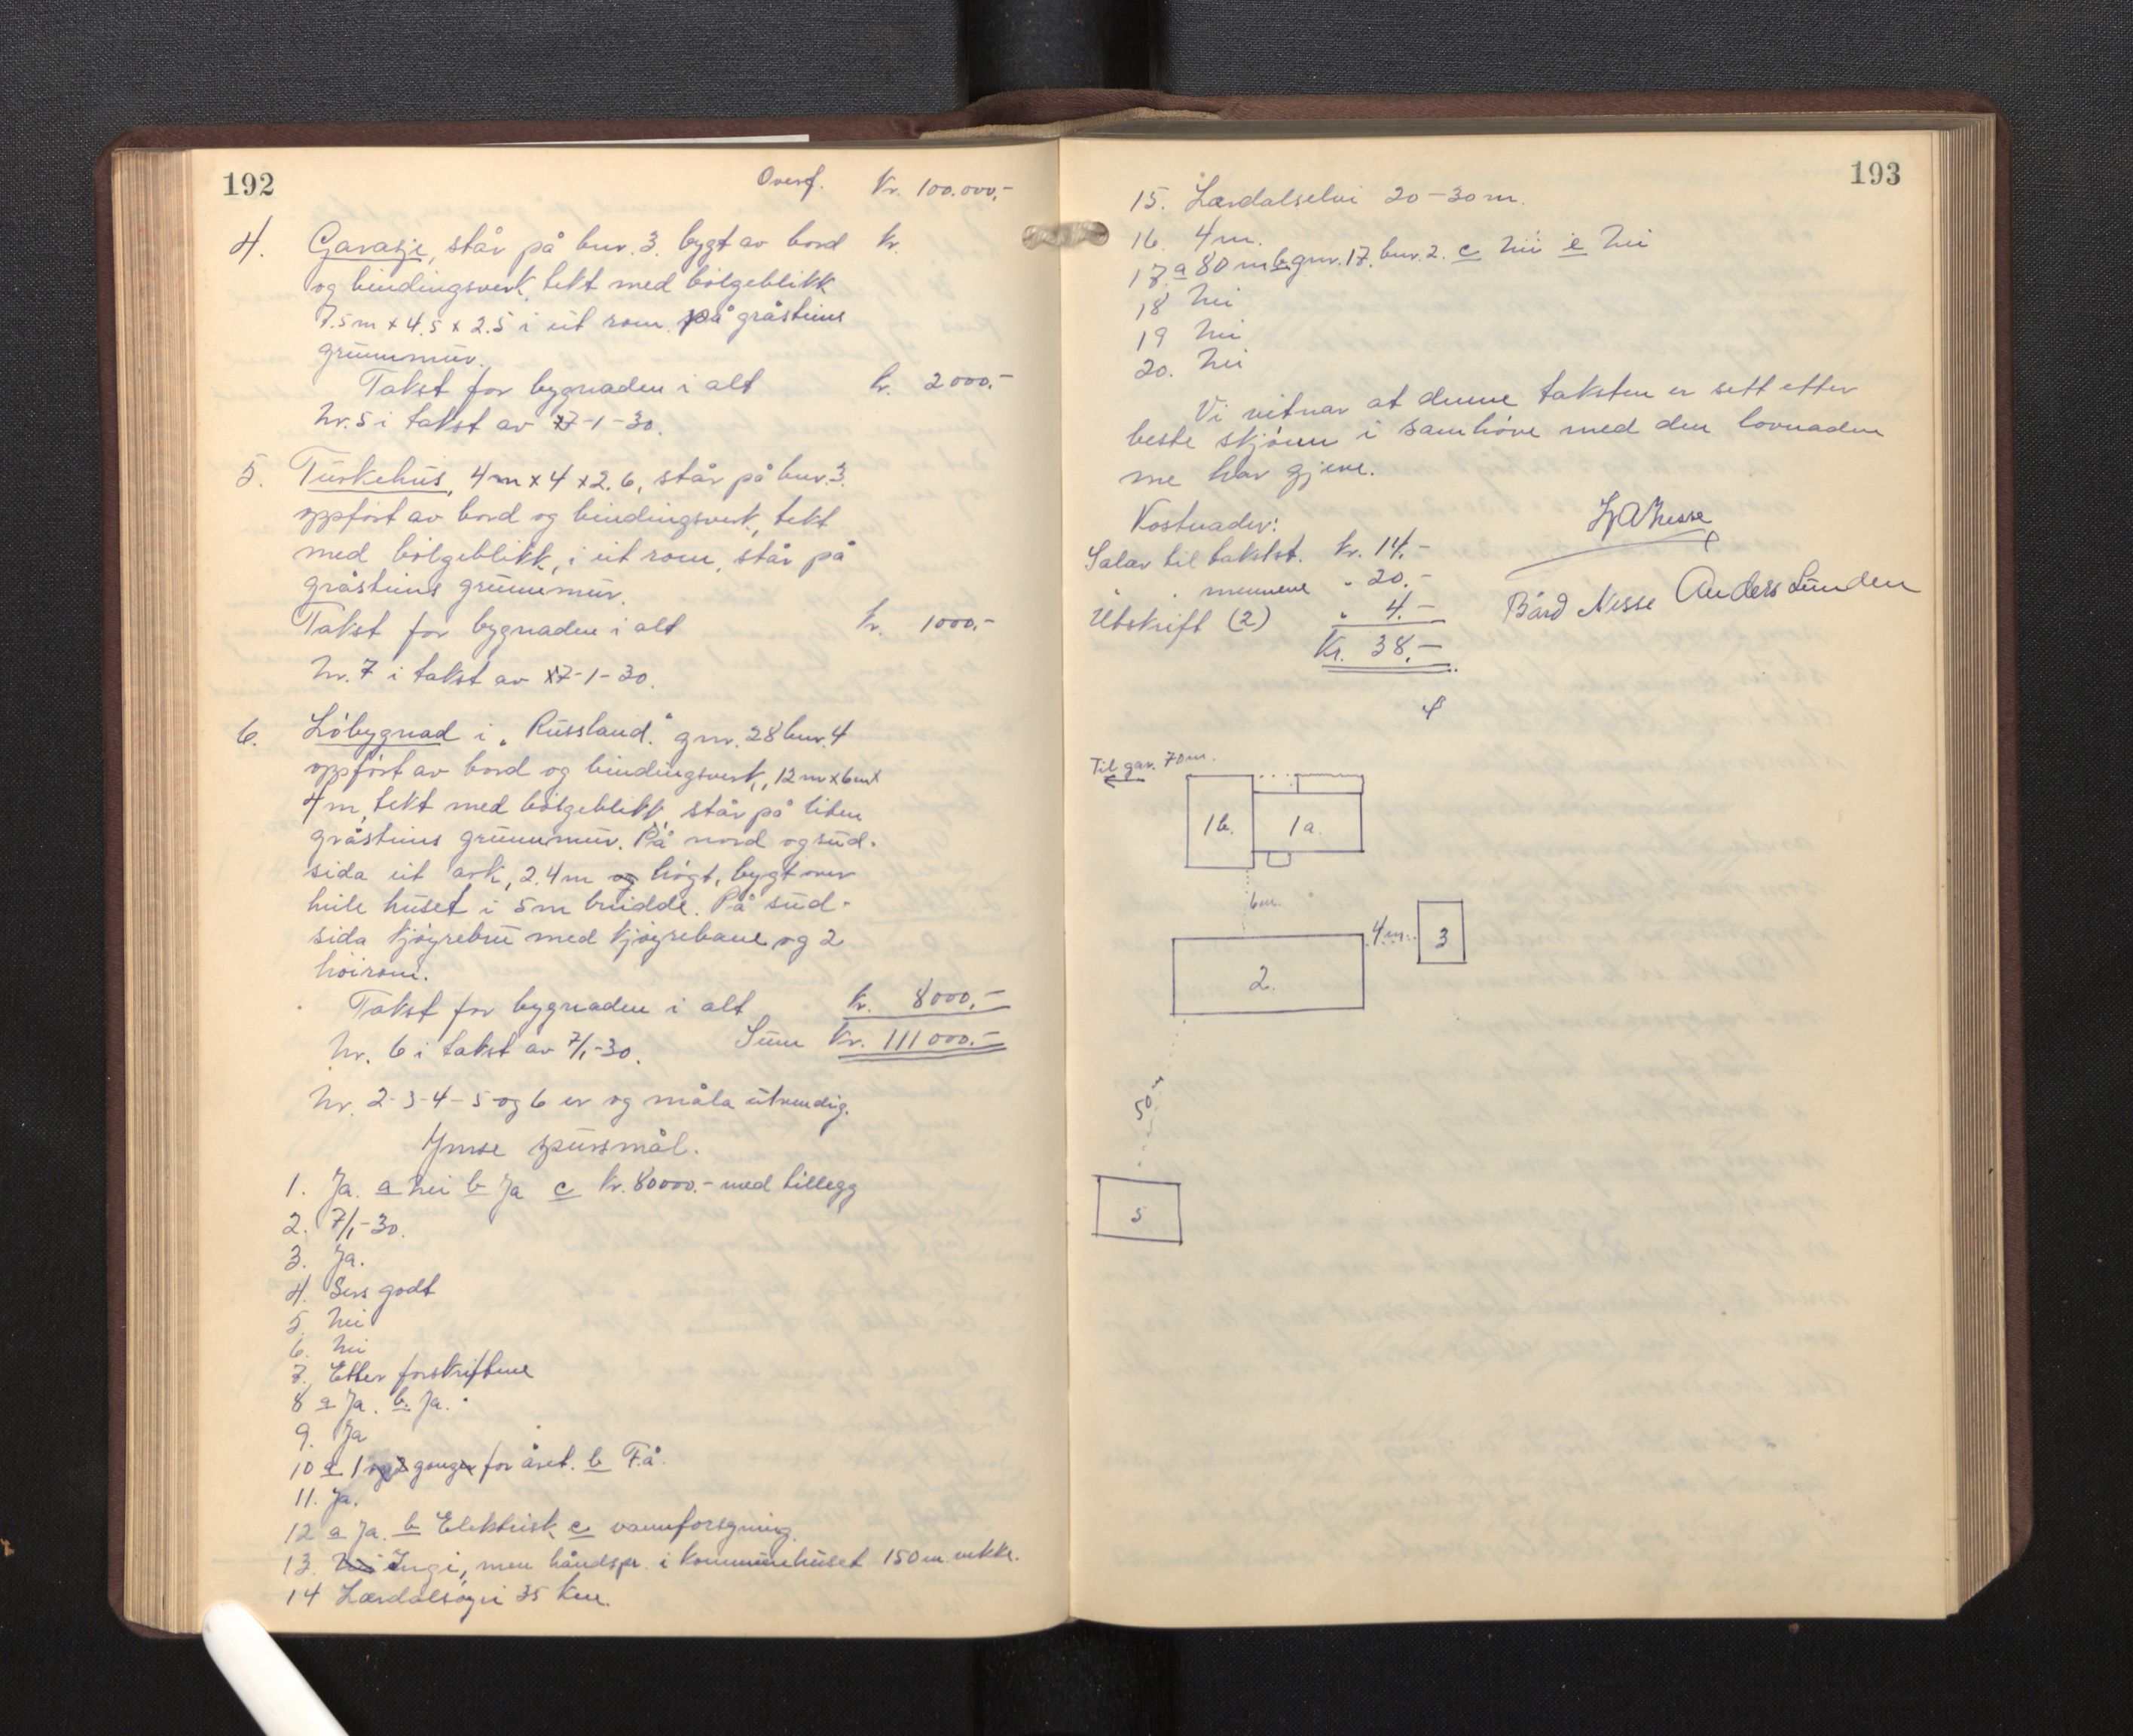 192
Overf. Kr. 100.000,-
4. Garasje, står på bnr. 3. bygt av bord kr.
og bindingsverk, tekt med bölgeblikk
7.5 m x 4.5 x 2.5 i eit rom. på gråsteins
grunnmur.
Takst for bygnaden i alt kr. 2000,-
Nr. 5 i takst av 7-1-30.
5. Turkehus, 4m x 4 x 2.6, står på bnr. 3.
oppfört av bord og bindingsverk, tekt
med bölgeblikk, i eit rom, står på
gråsteins grunnmur.
Takst for bygnaden i alt kr. 1000,-
Nr. 7 i takst av 7-1-30.
6. Löbygnad i "Russland." gnr. 28 bnr. 4
oppfört av bord og bindingsverk, 12 m x 6m x
4 m, tekt med bölgeblikk, står på liten
gråsteins grunnmur. På nord og sud-
sida eit ark, 2.4 m og högt, bygt over
heile huset i 5m breidde. På sud-
sida kjöyrebru med kjöyrebane og 2
höirom.
Takst for bygnaden i alt kr. 8000,-
Nr. 6 i takst av 7/1-30. Sum Kr. 111000.-
Nr. 2-3-4-5-og 6 er og måla utvendig.
Ymse spursmål.
1. Ja. a Nei b Ja c kr. 80000.- med tillegg
2. 7/1-30.
3. Ja.
4. Sers godt
5. Nei
6. Nei
7. Etter forskriftene
8 a Ja. b. Ja.
9. Ja
10 a 1 og 2 gonger for året. b Få.
11. Ja.
12 a Ja. b Elektrisk c vannforsyning.
13. Nei Ingi, men håndspr. i kommunehuset 150 m. vekke.
14 Lærdalsöyri 35 km.
193
15. Lærdalselvi 20-30 m.
16. 4 m.
17. a 80 m b gnr. 17. bnr. 2. c Nei e Nei
18 Nei
19 Nei
20. Nei
Vi vitnar at denne taksten er sett etter
beste skjönn i samhöve med den lovnaden
me har gjeve.
Kostnader:
Salar til takst. kr. 14.-
" " mennene " 20.-
Utskrift (2) " 4.-
Kr. 38.-
Nesse
Bård Nesse Anders Lunden
Til gar. 70m.
1b. 1a.
6m.
4m. 3
2.
50
5